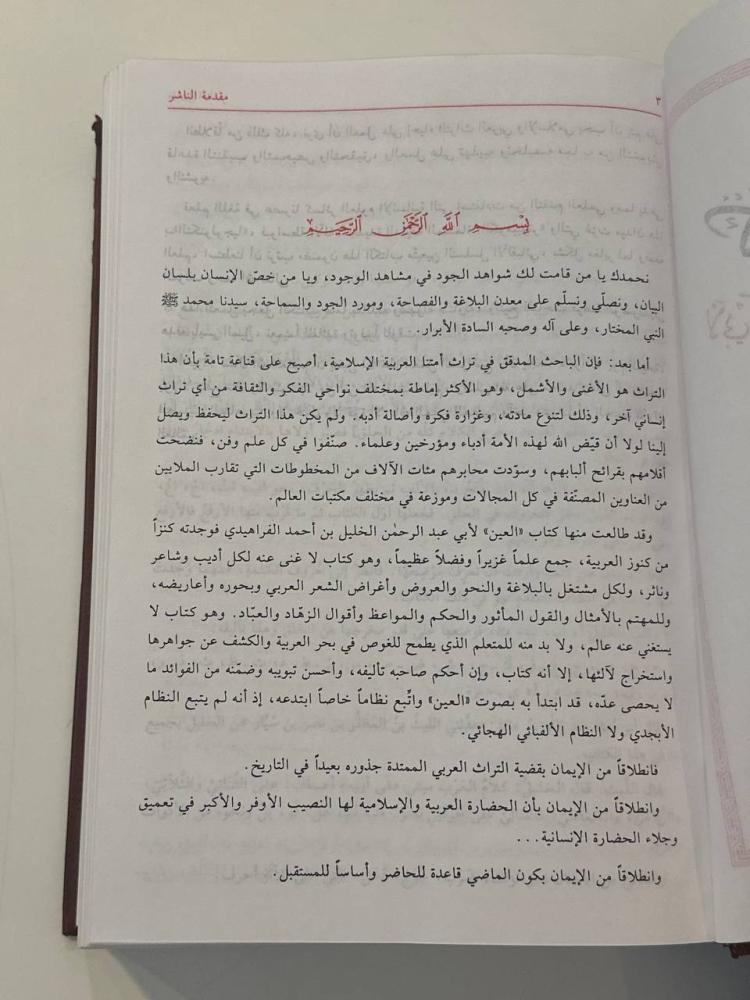 مقدمة الناشر ٣
بِسْمِ اللَّهِ الرَّحْمَٰنِ الرَّحِيمِ
نحمدك يا من قامت لك شواهد الجود في مشاهد الوجود، ويا من خصّ الإنسان بلسان
البيان، ونصلّي ونسلّم على معدن البلاغة والفصاحة، ومورد الجود والسماحة، سيدنا محمد ﷺ
النبي المختار، وعلى آله وصحبه السادة الأبرار.
أما بعد: فإن الباحث المدقق في تراث أمتنا العربية الإسلامية، أصبح على قناعة تامة بأن هذا
التراث هو الأغنى والأشمل، وهو الأكثر إماطة بمختلف نواحي الفكر والثقافة من أي تراث
إنساني آخر، وذلك لتنوع مادته، وغزارة فكره وأصالة أدبه. ولم يكن هذا التراث ليحفظ ويصل
إلينا لولا أن قيّض الله لهذه الأمة أدباء ومؤرخين وعلماء. صنّفوا في كل علم وفن، فنضحت
أقلامهم بقرائح ألبابهم، وسوّدت محابرهم مئات الآلاف من المخطوطات التي تقارب الملايين
من العناوين المصنّفة في كل المجالات وموزعة في مختلف مكتبات العالم.
وقد طالعت منها كتاب «العين» لأبي عبد الرحمٰن الخليل بن أحمد الفراهيدي فوجدته كنزاً
من كنوز العربية، جمع علماً غزيراً وفضلاً عظيماً، وهو كتاب لا غنى عنه لكل أديب وشاعر
وناثر، ولكل مشتغل بالبلاغة والنحو والعروض وأغراض الشعر العربي وبحوره وأعاريضه،
وللمهتم بالأمثال والقول المأثور والحكم والمواعظ وأقوال الزهّاد والعبّاد. وهو كتاب لا
يستغني عنه عالم، ولا بد منه للمتعلم الذي يطمح للغوص في بحر العربية والكشف عن جواهرها
واستخراج لآلئها، إلا أنه كتاب، وإن أحكم صاحبه تأليفه، وأحسن تبويبه وضمّنه من الفوائد ما
لا يحصى عدّه، قد ابتدأ به بصوت «العين» واتّبع نظاماً خاصاً ابتدعه، إذ أنه لم يتبع النظام
الأبجدي ولا النظام الألفبائي الهجائي.
فانطلاقاً من الإيمان بقضية التراث العربي الممتدة جذوره بعيداً في التاريخ.
وانطلاقاً من الإيمان بأن الحضارة العربية والإسلامية لها النصيب الأوفر والأكبر في تعميق
وجلاء الحضارة الإنسانية...
وانطلاقاً من الإيمان بكون الماضي قاعدة للحاضر وأساساً للمستقبل.